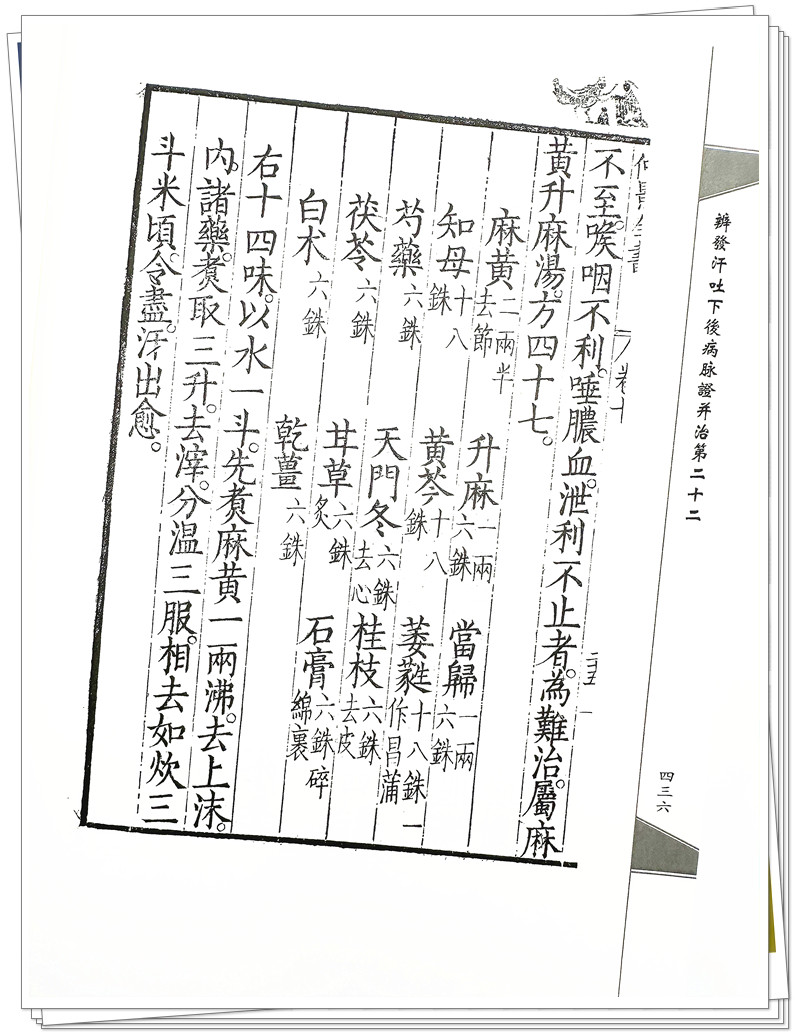 辨發汗吐下後病脉證并治第二十二
四三六
卷十
不至。喉咽不利。唾膿血。泄利不止者。為難治。屬麻
黃升麻湯。方四十七。
麻黃二兩半去節 升麻一兩六銖 當歸一兩六銖
知母十八銖 黃芩十八銖 萎蕤十八銖一作昌蒲
芍藥六銖 天門冬六銖去心 桂枝六銖去皮
茯苓六銖 甘草六銖炙 石膏六銖碎綿裹
白术六銖 乾薑六銖
右十四味。以水一斗。先煑麻黃一兩沸。去上沫。
內諸藥。煑取三升。去滓。分温三服。相去如炊三
斗米頃。令盡。汗出愈。